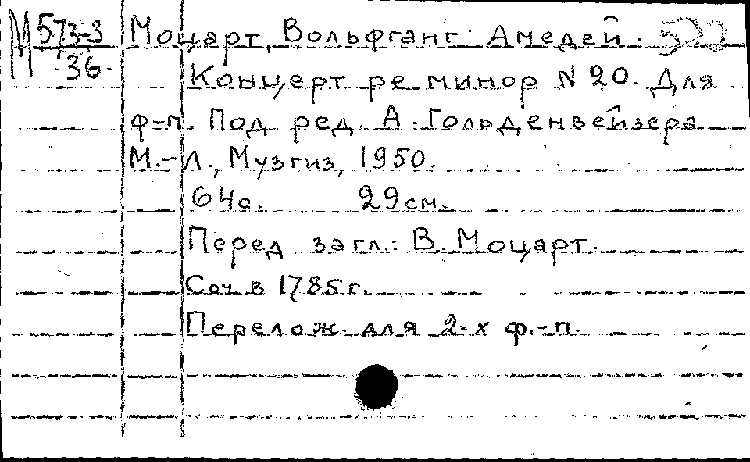 М 573-3 Моцарт, Вольфганг Амедей. 522
36. Концерт ре минор N 20. Для
ф-п. Под ред. А. Гольденвейзера
М.-Л., Музгиз, 1950.
64с. 29см.
Перед загл.: В. Моцарт.
Соч. в 1785г.
Перелож. для 2-х ф.-п.